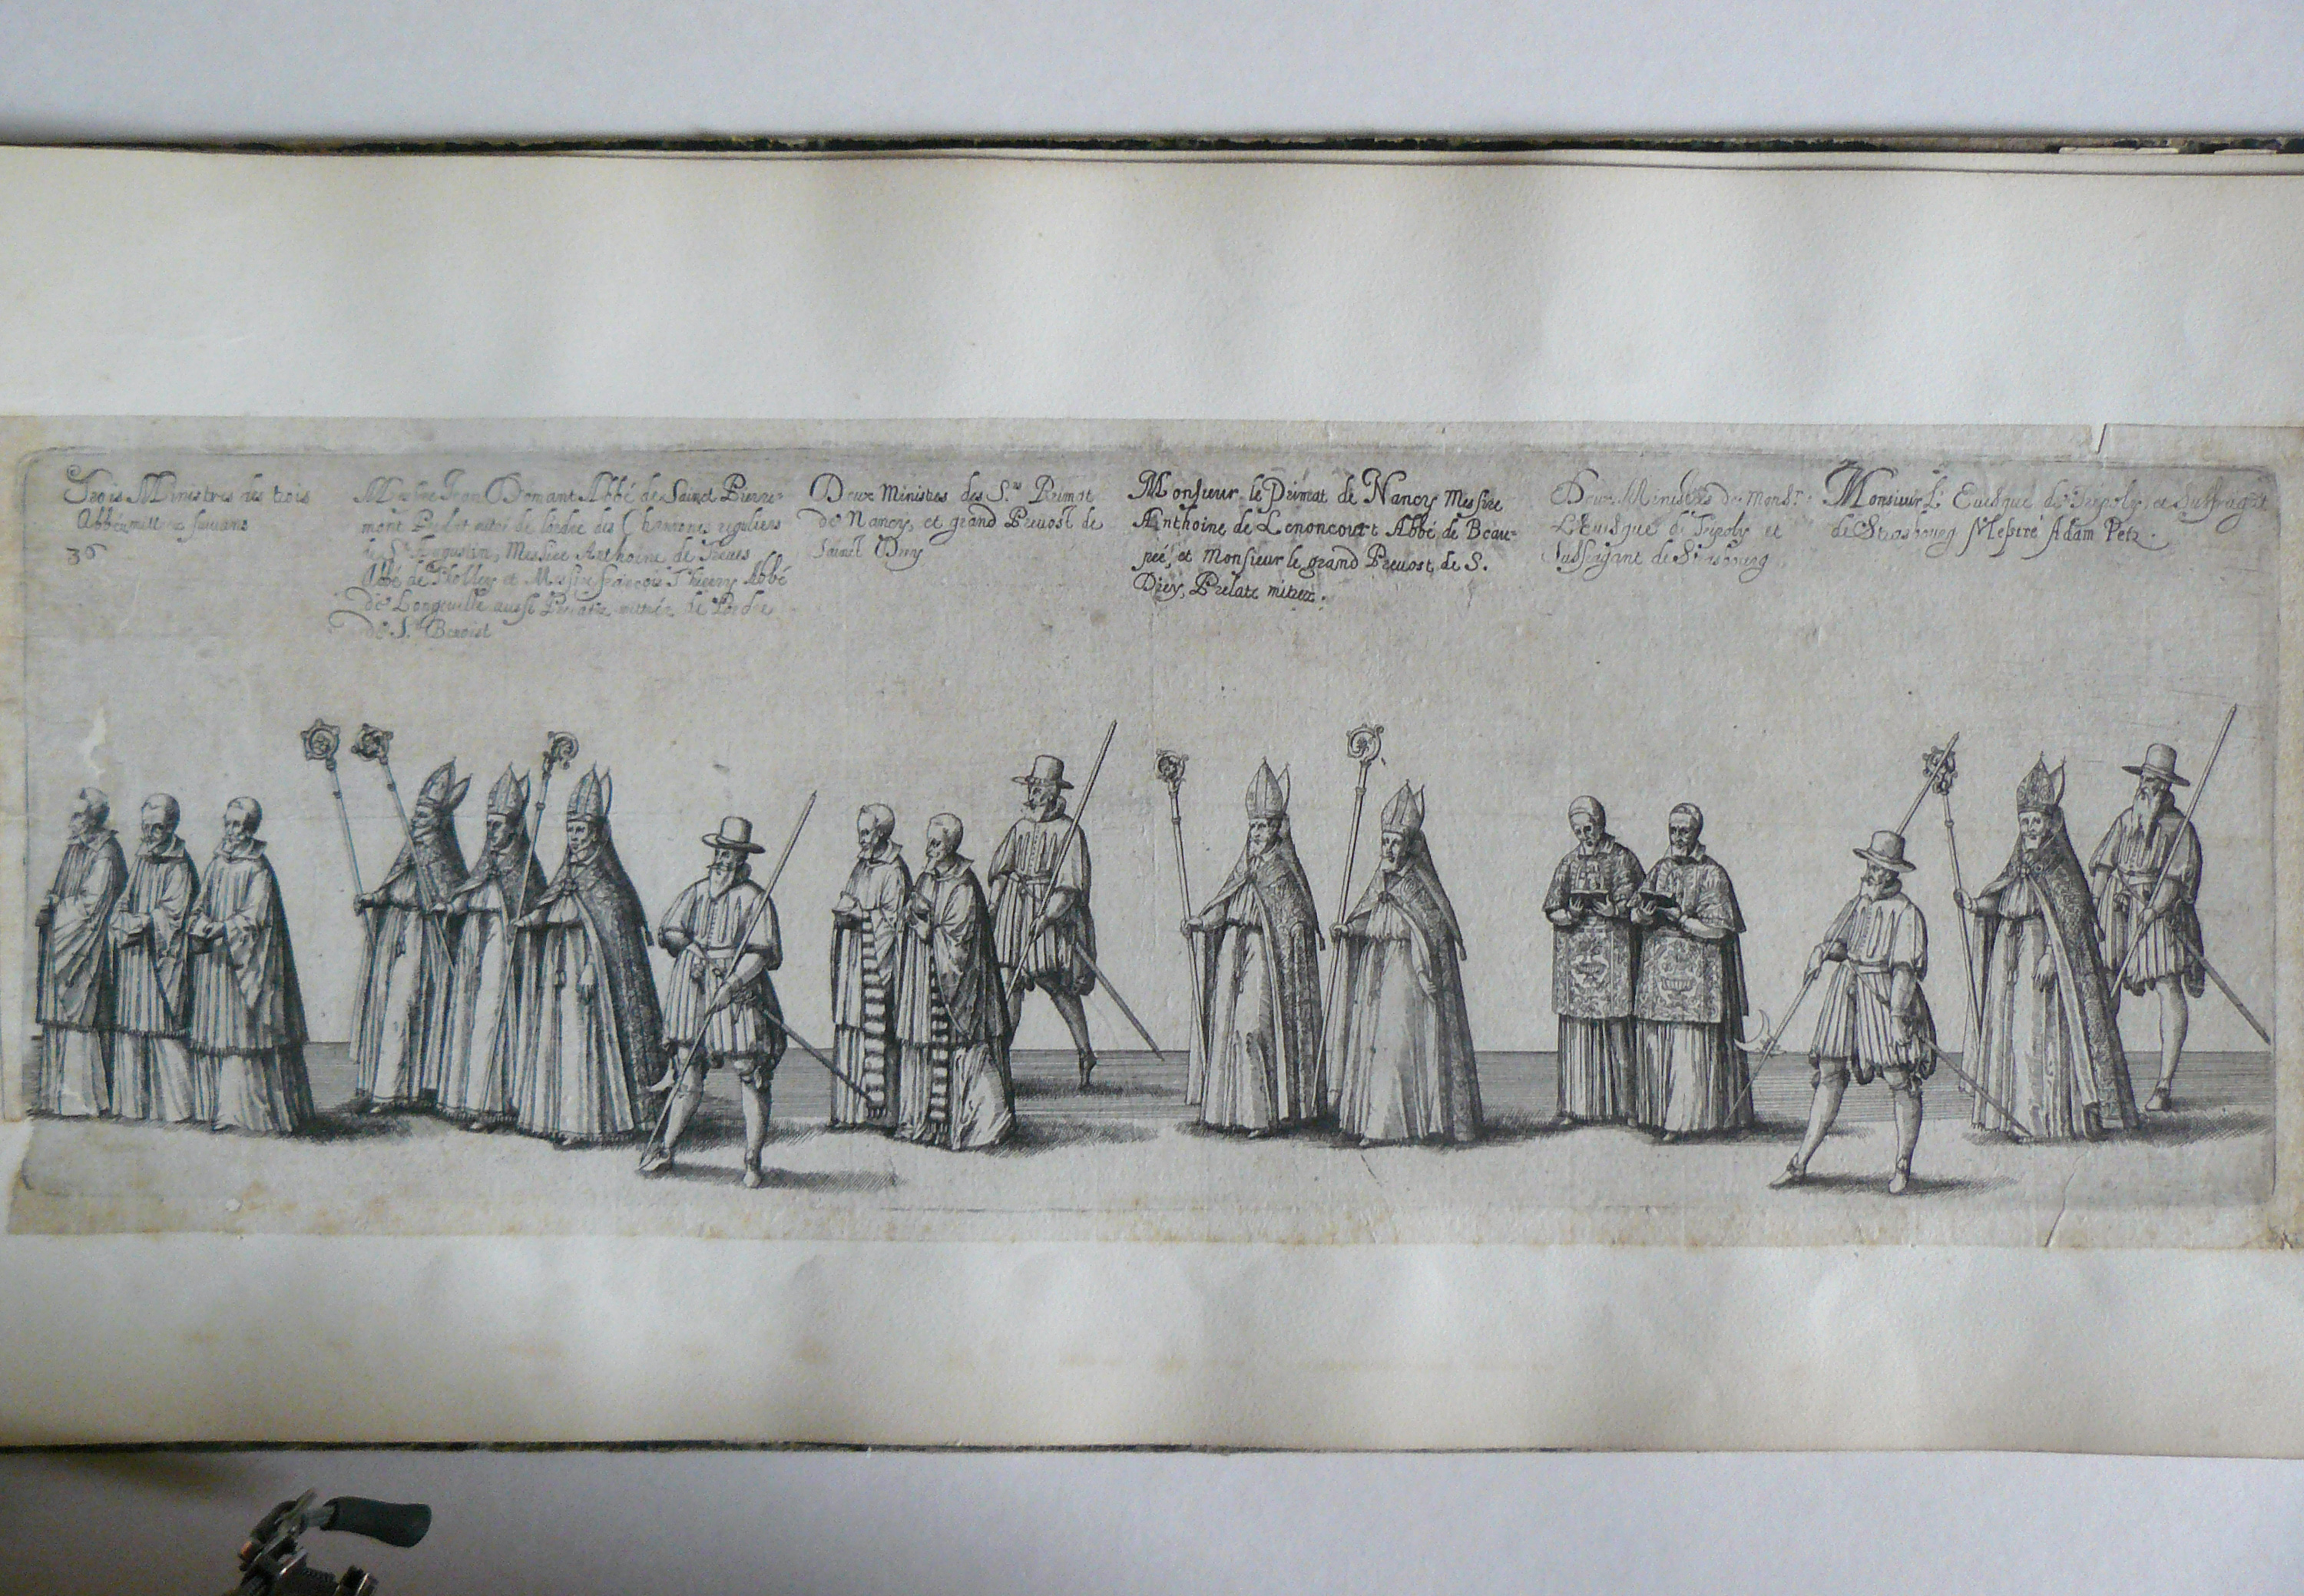 Trois Ministres des trois
Abbéz mittrez suiuans
36
Messire Jean Domant Abbé de Sainct Pierre-
mont Prelat mitré de l'ordre des Chanoines reguliers
de St. Augustin, Messire Anthoine de Treues
Abbé de Pholley et Messire françois Thierry Abbé
de Longeuille aussi Prelatz mitréz de l'ordre
de St. Benoist
Deux Ministres des Srs. Primat
de Nancy, et grand Preuost de
Sainct Diey
Monsieur le Primat de Nancy Messire
Anthoine de Lenoncourt Abbé de Beau-
pré, et Monsieur le grand Preuost de S.
Diey, Prelatz mitrez.
Deux Ministres de Monsr.
L'Euesque de Tripoly et
Suffragant de Strasbourg
Monsieur L'Euesque de Trepoly, et Suffragãt
de Strasbourg Messire Adam Petz.